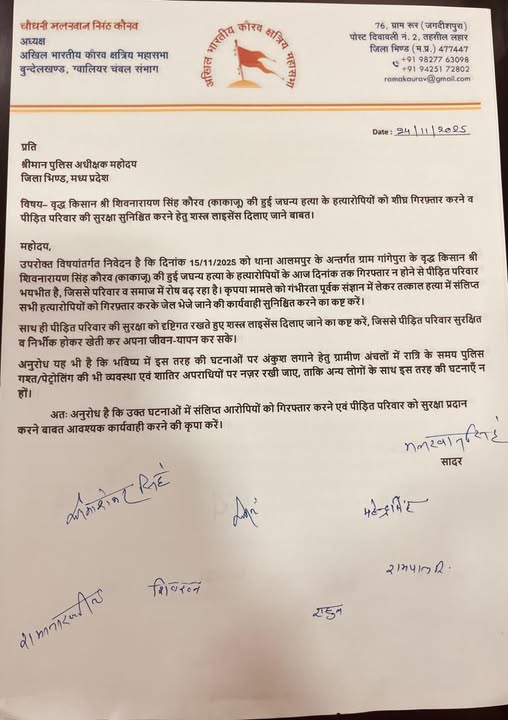 चौधरी मलखान सिंह कौरव
अध्यक्ष
अखिल भारतीय कौरव क्षत्रिय महासभा
बुन्देलखण्ड, ग्वालियर चंबल संभाग
अखिल भारतीय कौरव क्षत्रिय महासभा
76, ग्राम रूर (जगदीशपुरा)
पोस्ट दिवावली नं. 2, तहसील लहार
जिला भिण्ड (म.प्र.) 477447
+91 98277 63098
+91 94251 72802
ramakaurav@gmail.com
Date : 24/11/2025
प्रति
श्रीमान पुलिस अधीक्षक महोदय
जिला भिण्ड, मध्य प्रदेश
विषय– वृद्ध किसान श्री शिवनारायण सिंह कौरव (काकाजू) की हुई जघन्य हत्या के हत्यारोपियों को शीघ्र गिरफ़्तार करने व
पीड़ित परिवार की सुरक्षा सुनिश्चित करने हेतु शस्त्र लाइसेंस दिलाए जाने बाबत।
महोदय,
उपरोक्त विषयांतर्गत निवेदन है कि दिनांक 15/11/2025 को थाना आलमपुर के अन्तर्गत ग्राम गांगेपुरा के वृद्ध किसान श्री
शिवनारायण सिंह कौरव (काकाजू) की हुई जघन्य हत्या के हत्यारोपियों के आज दिनांक तक गिरफ्तार न होने से पीड़ित परिवार
भयभीत है, जिससे परिवार व समाज में रोष बढ़ रहा है। कृपया मामले को गंभीरता पूर्वक संज्ञान में लेकर तत्काल हत्या में संलिप्त
सभी हत्यारोपियों को गिरफ़्तार करके जेल भेजे जाने की कार्यवाही सुनिश्चित करने का कष्ट करें।
साथ ही पीड़ित परिवार की सुरक्षा को दृष्टिगत रखते हुए शस्त्र लाइसेंस दिलाए जाने का कष्ट करें, जिससे पीड़ित परिवार सुरक्षित
व निर्भीक होकर खेती कर अपना जीवन-यापन कर सके।
अनुरोध यह भी है कि भविष्य में इस तरह की घटनाओं पर अंकुश लगाने हेतु ग्रामीण अंचलों में रात्रि के समय पुलिस
गश्त/पेट्रोलिंग की भी व्यवस्था एवं शातिर अपराधियों पर नज़र रखी जाए, ताकि अन्य लोगों के साथ इस तरह की घटनाएँ न
हों।
अतः अनुरोध है कि उक्त घटनाओं में संलिप्त आरोपियों को गिरफ्तार करने एवं पीड़ित परिवार को सुरक्षा प्रदान
करने बाबत आवश्यक कार्यवाही करने की कृपा करें।
मलखान सिंह
सादर
महेन्द्र सिंह
शिवरतन
राहुल